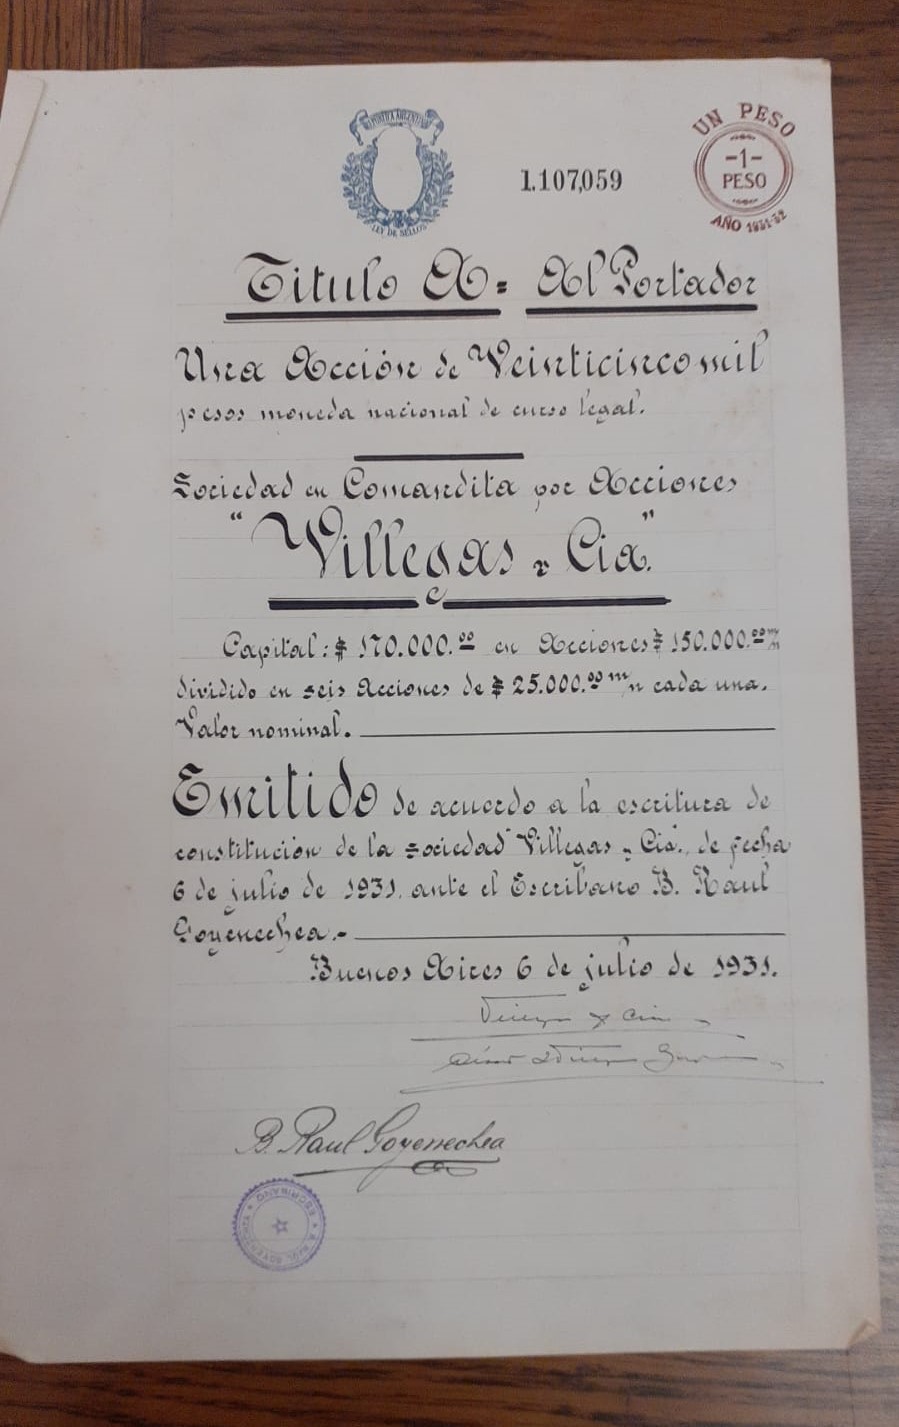 REPUBLICA ARGENTINA
LEY DE SELLOS
1.107,059
UN PESO
-1-
PESO
AÑO 1931-32
Titulo A = Al Portador
Una Acción de Veinticinco mil
pesos moneda nacional de curso legal.
Sociedad en Comandita por Acciones
"Villegas y Cia".
Capital: $ 170.000.00 en Acciones $ 150.000.00 m/n
dividido en seis Acciones de $ 25.000.00 m/n cada una.
Valor nominal.
Emitido de acuerdo a la escritura de
constitución de la sociedad "Villegas y Cia"., de fecha
6 de julio de 1931. ante el Escribano B. Raul
Goyenechea.-
Buenos Aires 6 de julio de 1931.
y Cia
B. Raul Goyenechea
ESCRIBANO